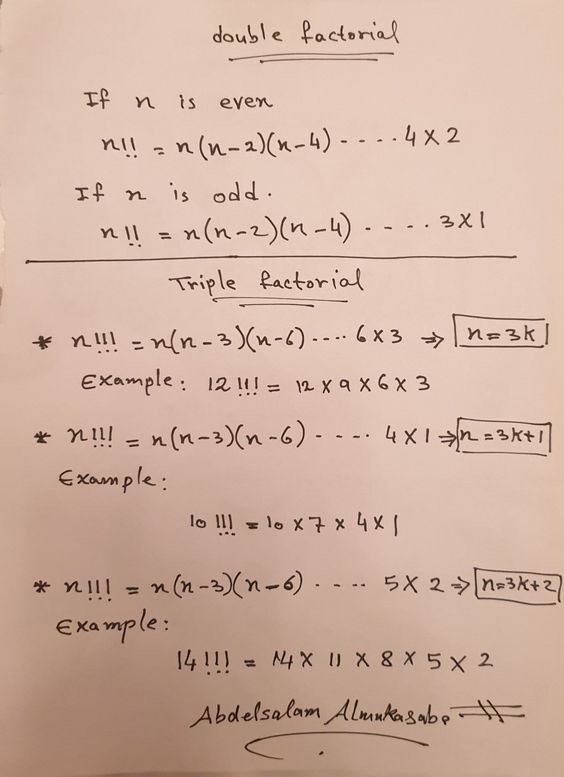 double factorial
If n is even
n!! = n(n-2)(n-4) - - - . 4 X 2
If n is odd.
n!! = n(n-2)(n-4) - - - . 3X1
Triple factorial
* n!!! = n(n-3)(n-6) .... 6 X 3 ⇒ n=3k
Example: 12!!! = 12 X 9 X 6 X 3
* n!!! = n(n-3)(n-6) - - - . 4 X 1 ⇒ n=3k+1
Example:
10 !!! = 10 X 7 X 4 X 1
* n!!! = n(n-3)(n-6) . - - - 5 X 2 ⇒ n=3k+2
Example:
14 !!! = 14 X 11 X 8 X 5 X 2
Abdelsalam Almukasabe